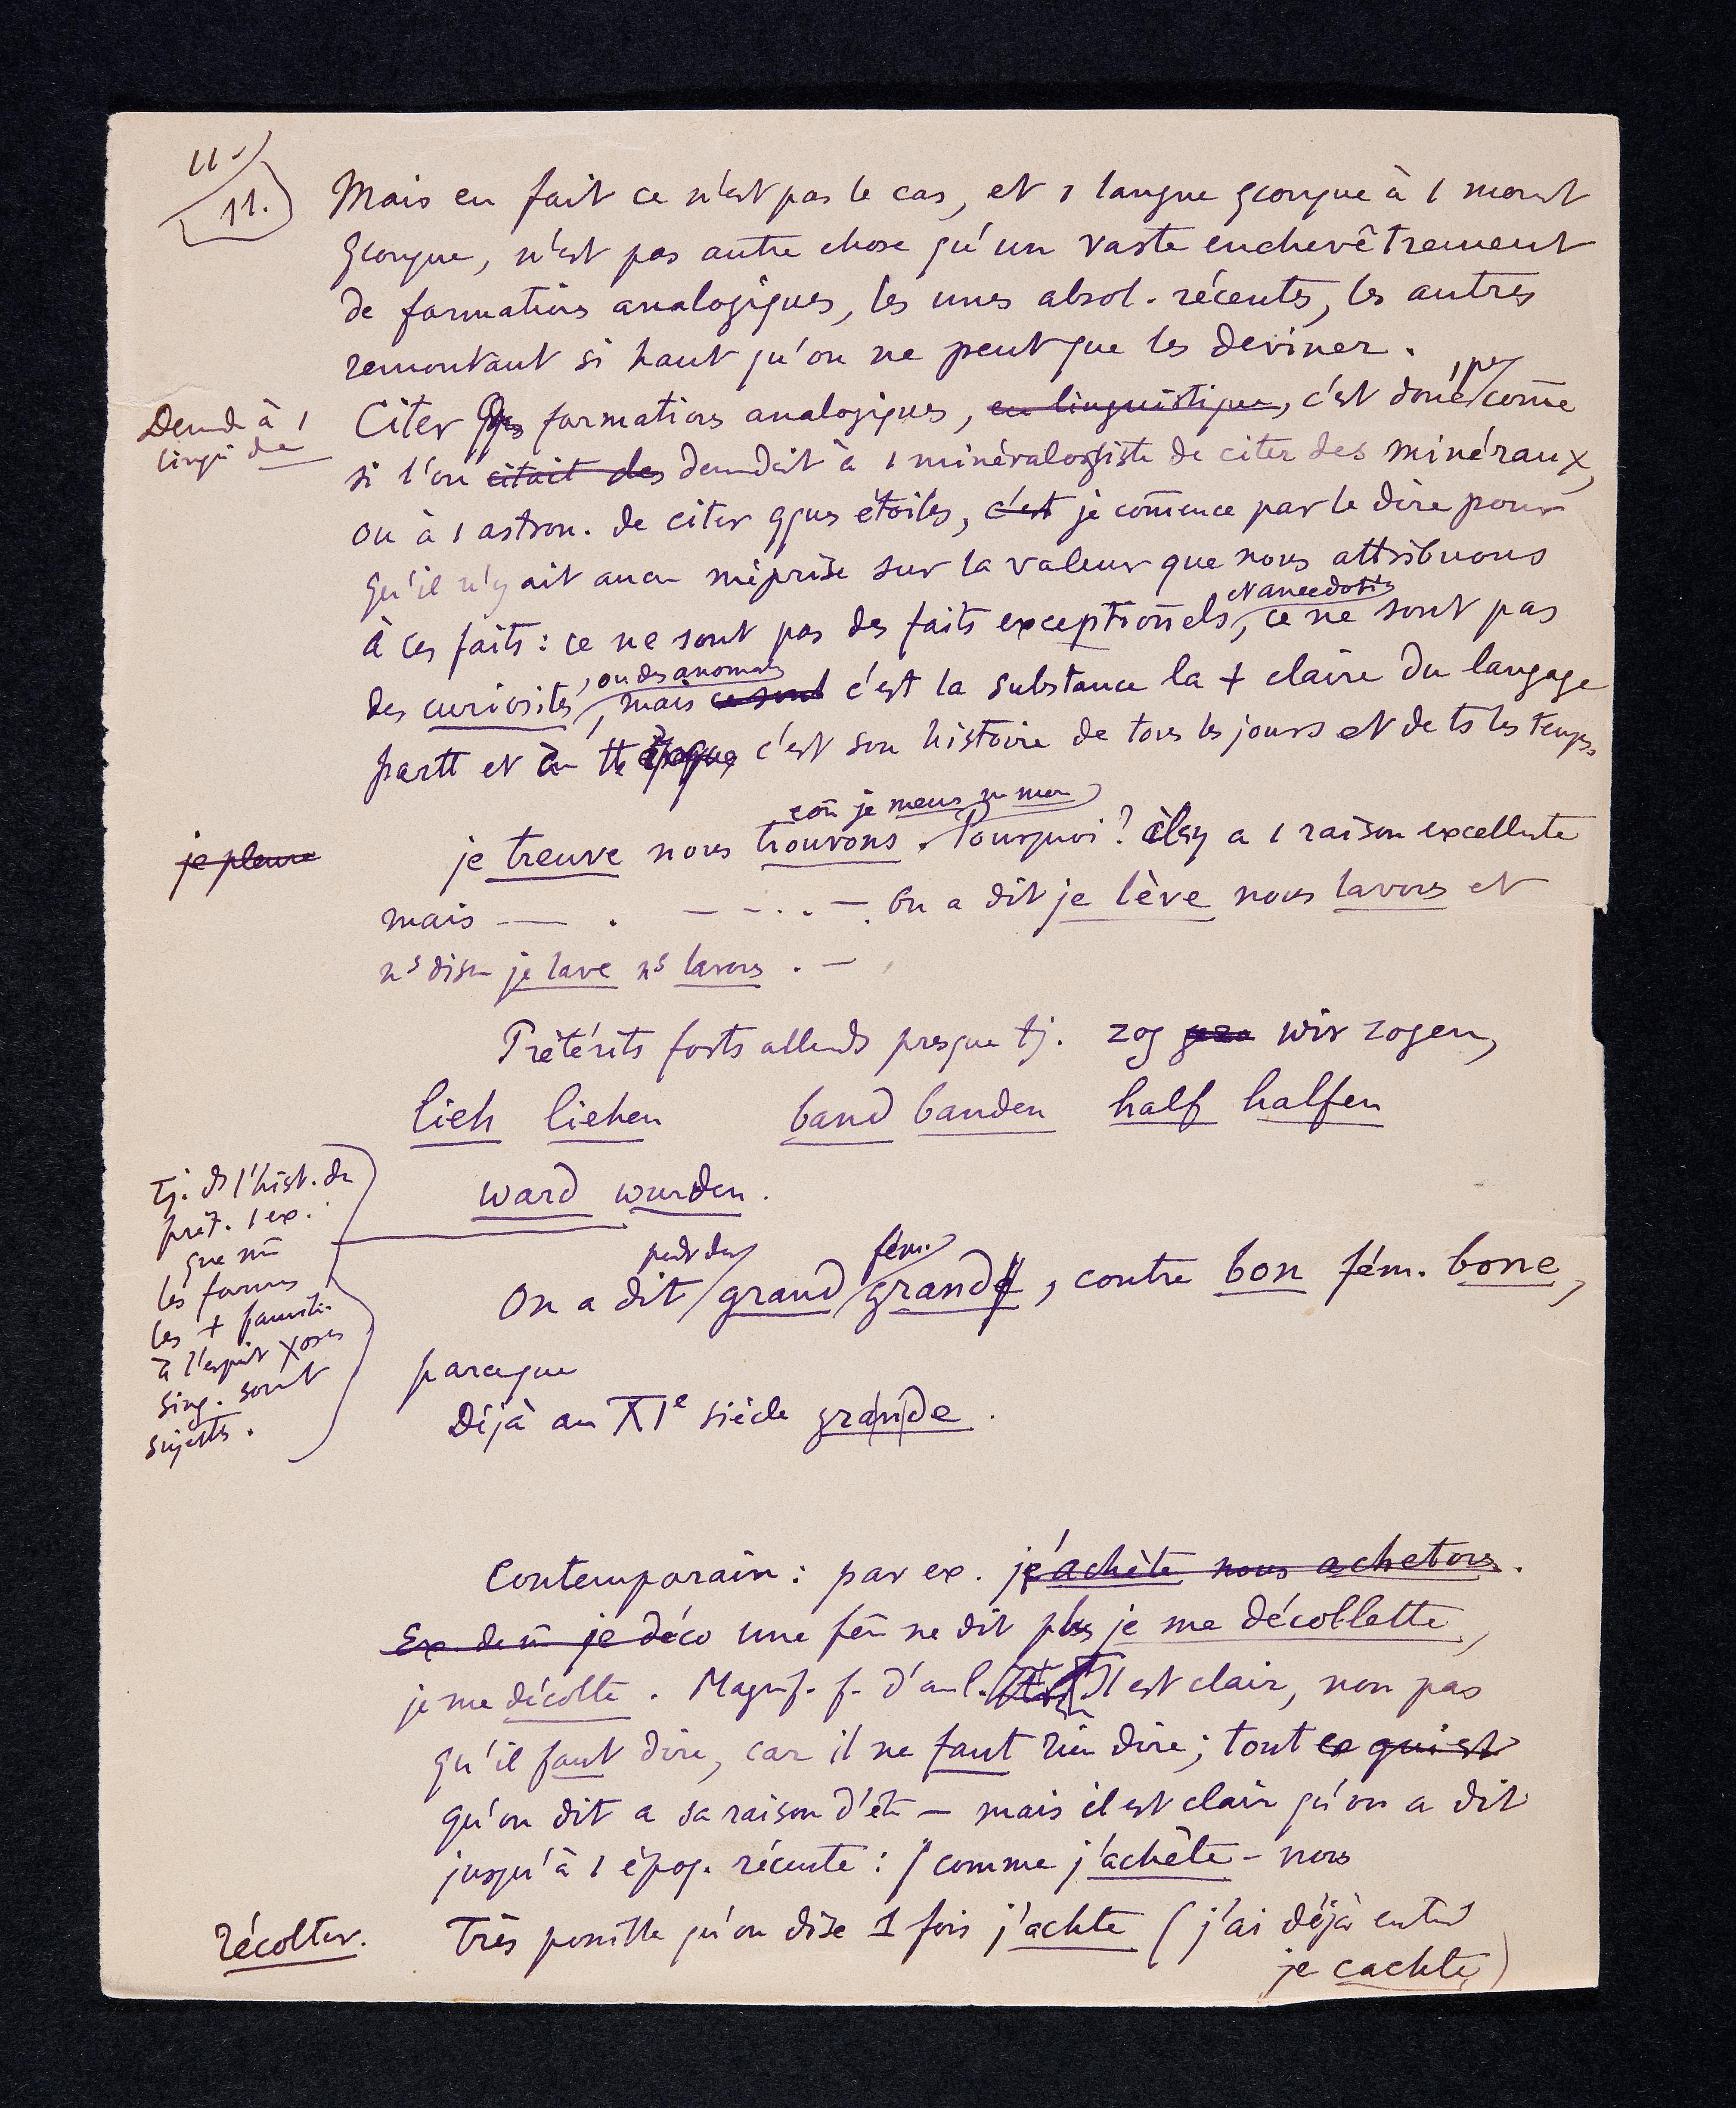 11
11.
Mais en fait ce n'est pas le cas, et 1 langue qconque à 1 momt
qconque, n'est pas autre chose qu'un vaste enchevêtrement
de formations analogiques, les unes absol. récentes, les autres
remontant si haut qu'on ne peut que les deviner.
Demd à 1
lingu de
Citer des formations analogiques, en linguistique, c'est donc comme
si l'on citait des demdait à 1 minéralogiste de citer des minéraux,
ou à 1 astron. de citer qques étoiles, c'est je commence par le dire pour
qu'il n'y ait aucn méprise sur la valeur que nous attribuons
et anecdotis
à ces faits : ce ne sont pas des faits exceptionnels, ce ne sont pas
, ou des anomals
des curiosités, mais ce sont c'est la substance la + claire du langage
partt et à tte époque, c'est son histoire de tous les jours et de ts les temps
com je meus n mou
je pleure
je treuve nous trouvons. Pourquoi? il y a 1 raison excellente
mais — . — - . . — . On a dit je lève nous lavons et
ns disn je lave ns lavons . —
Prétérits forts allemds presque tj. zog wir zogen,
lieh liehen band banden half halfen
ward wurden.
tj. ds l'hist. du
prét. 1 ex.
que mm
les formes
les + famili.
à l'esprit
sing. sont
sujettes.
pendt des fém.
On a dit grand grand, contre bon fém. bone,
parceque
Déjà au XIe siècle grande.
Contemporain : par ex. j'achète nous achetons.
Ex. de m je déco une fem ne dit plus je me décollette,
je me décolte. Magnif. f. d'anl. Il est clair, non pas
qu'il faut dire, car il ne faut rien dire; tout ce qui est
qu'on dit a sa raison d'êt — mais il est clair qu'on a dit
jusqu'à 1 époq. récente : (comme j'achète - nous
récolter.
Très possible qu'on dise 1 fois j'achte (j'ai déjà entend
je cachte)